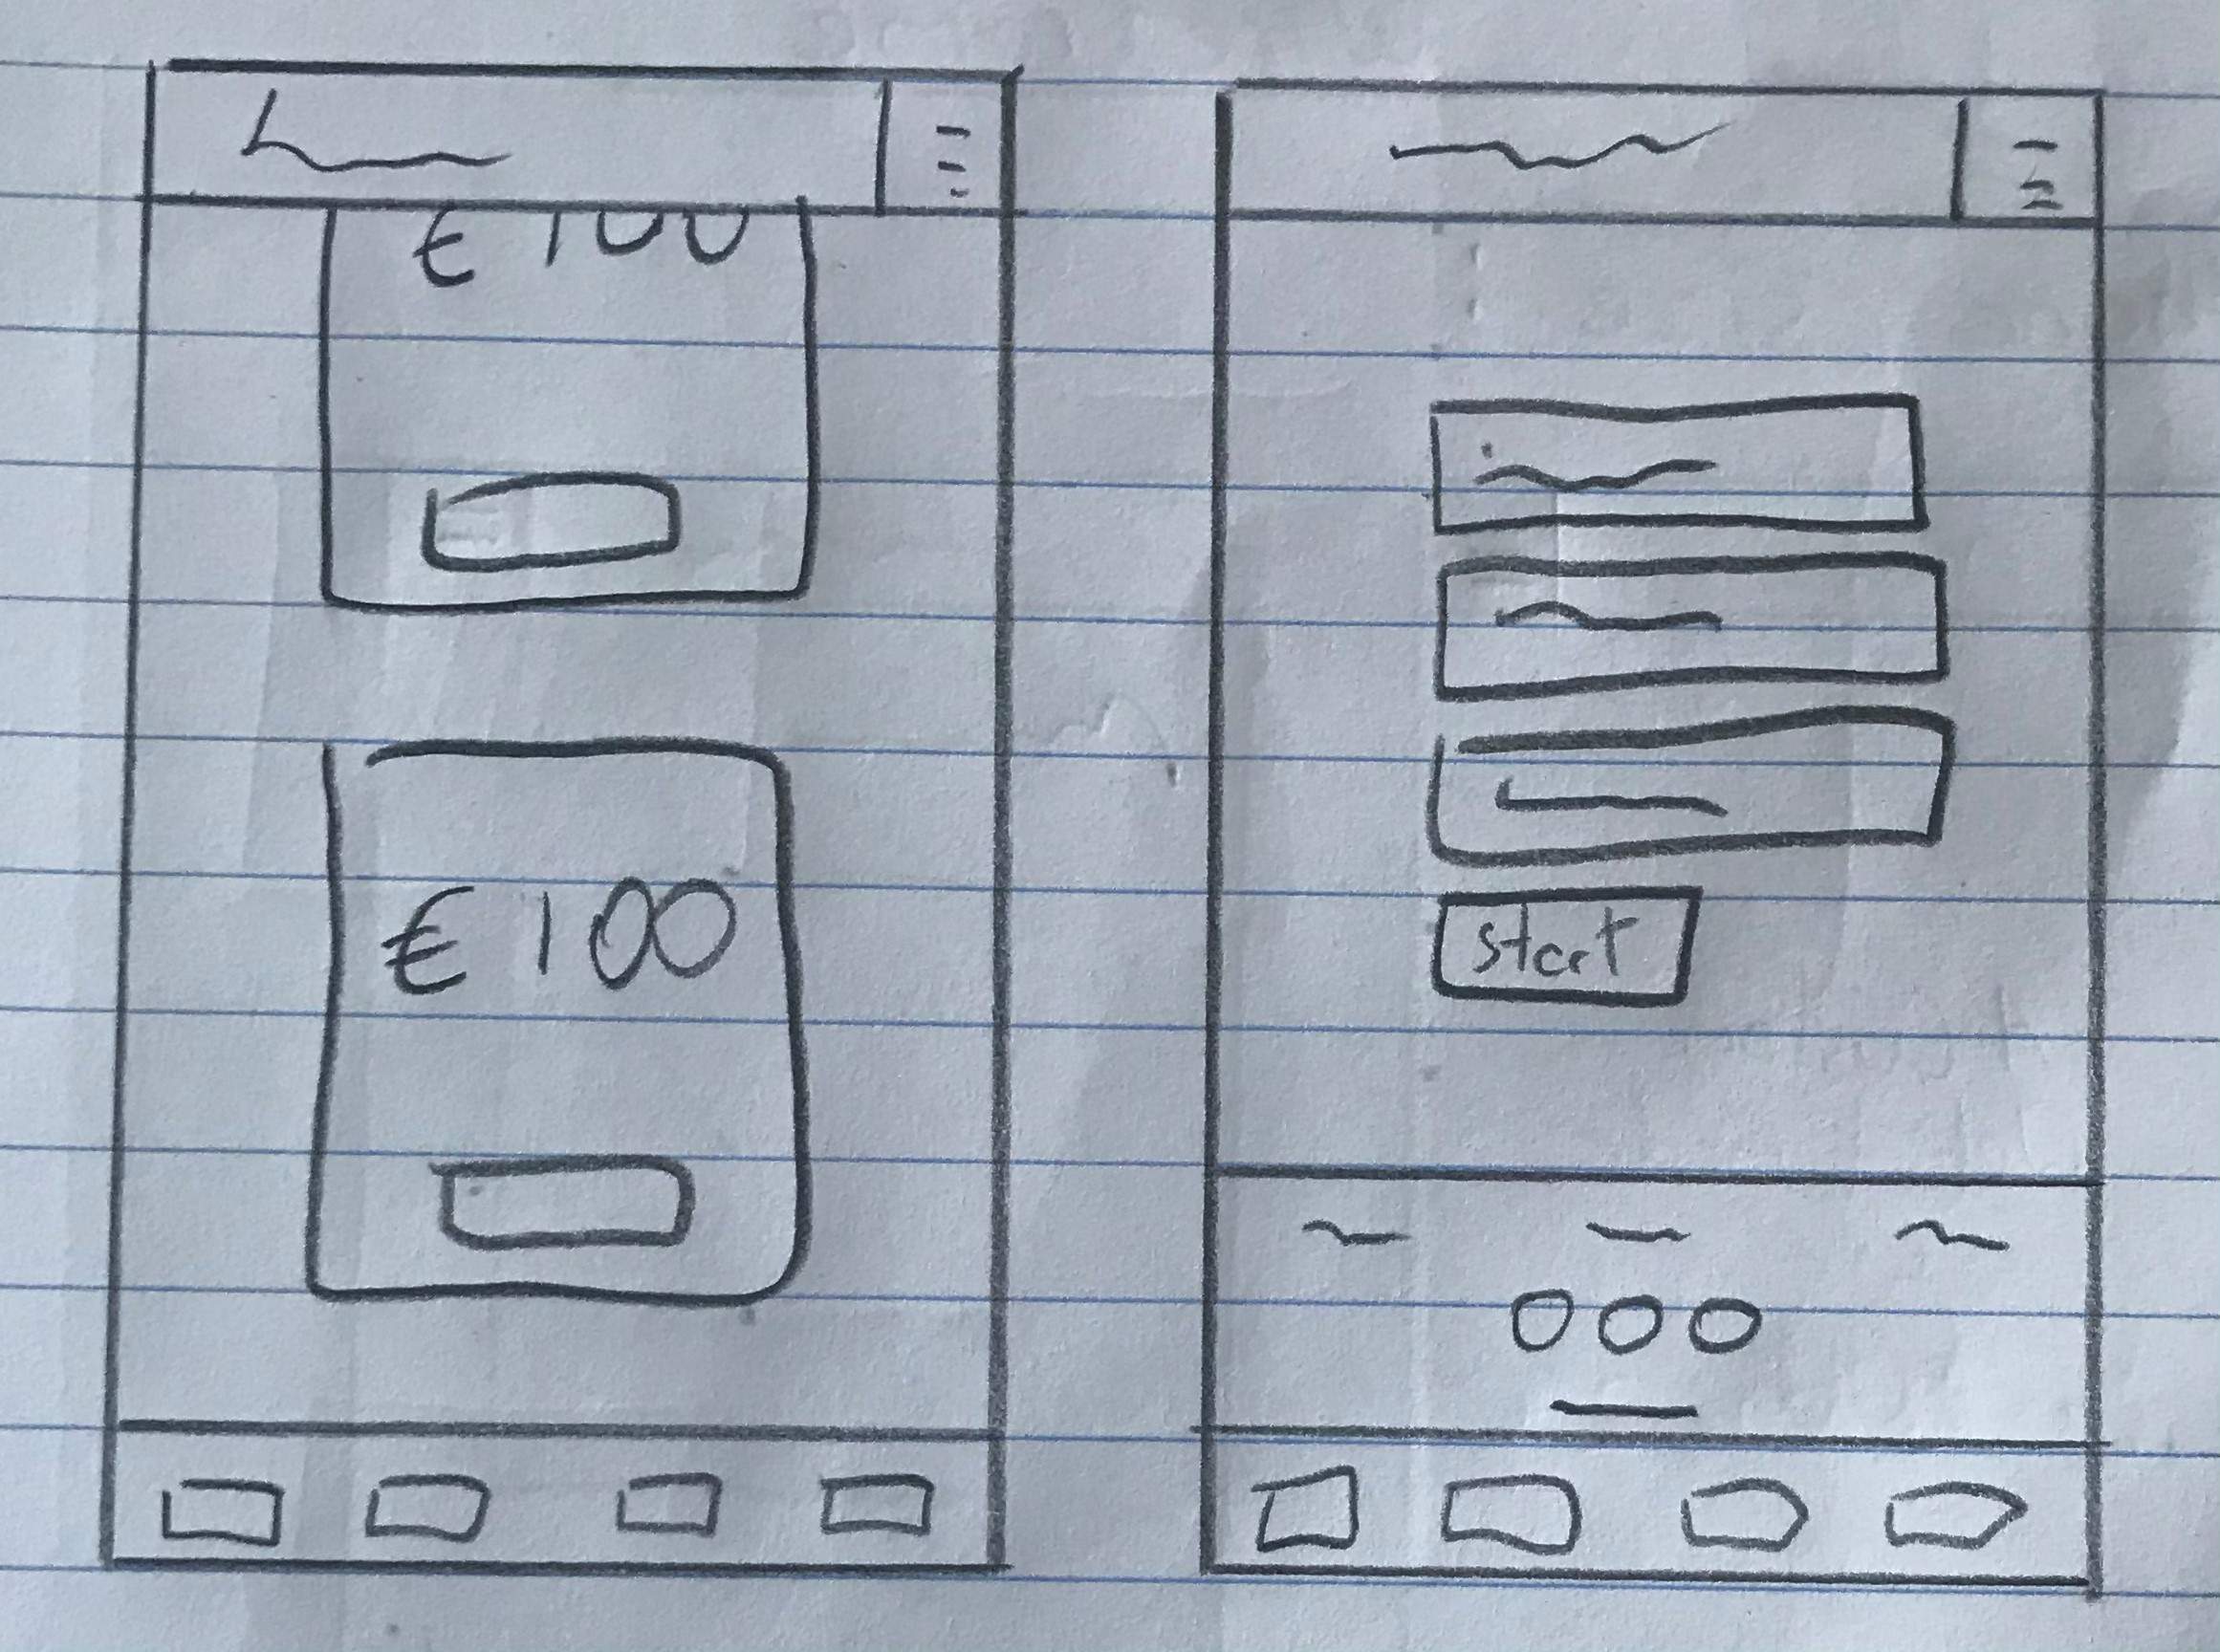 € 100
€ 100
start